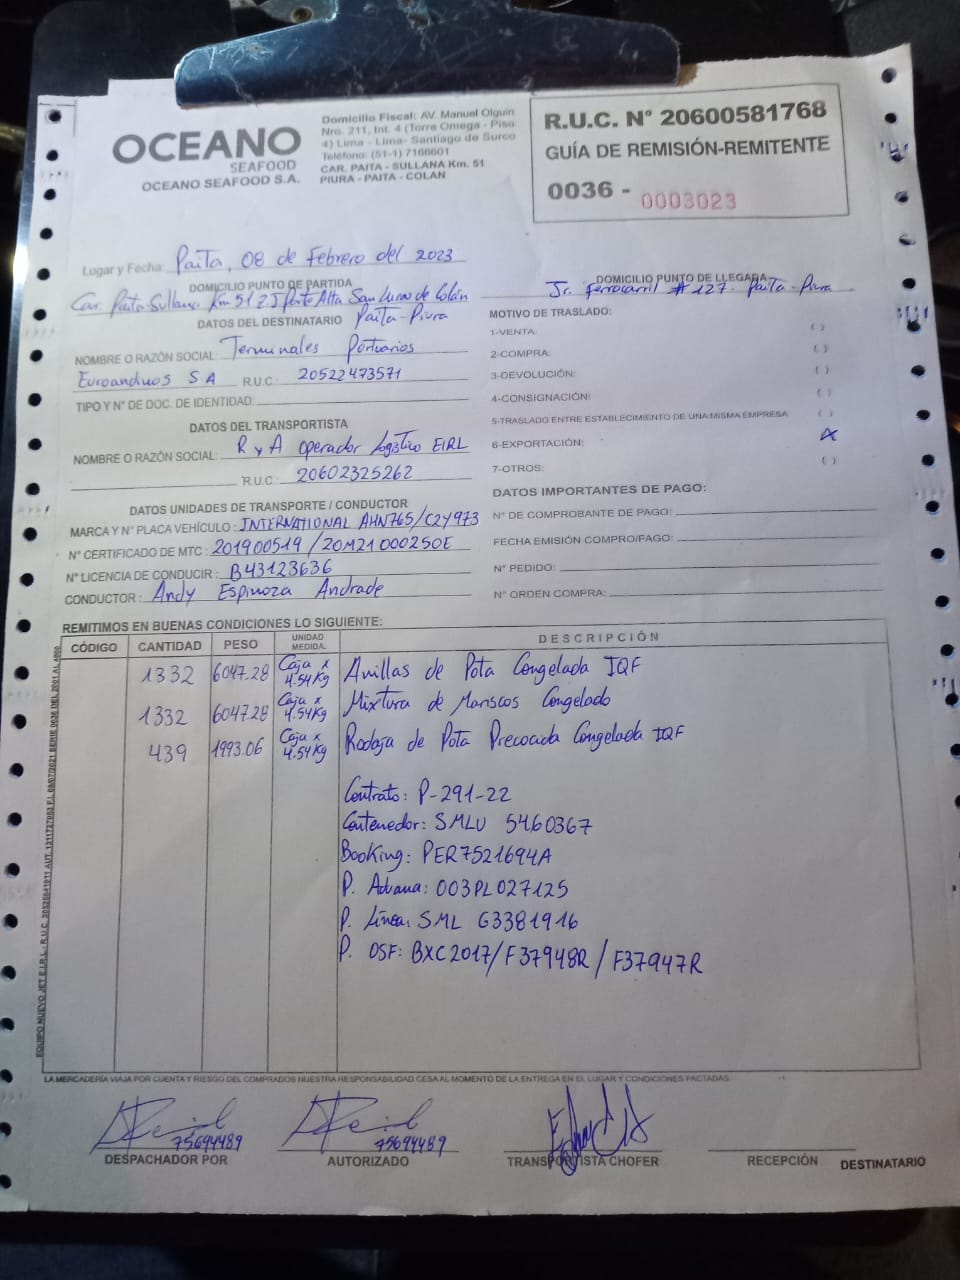 OCEANO
SEAFOOD
OCEANO SEAFOOD S.A.
Domicilio Fiscal: AV. Manuel Olguin
Nro. 211, Int. 4 (Torre Omega - Piso
4) Lima - Lima- Santiago de Surco
Teléfono: (51-1) 7166601
CAR. PAITA - SULLANA Km. 51
PIURA - PAITA - COLAN
R.U.C. Nº 20600581768
GUÍA DE REMISIÓN-REMITENTE
0036 - 0003023
Lugar y Fecha: Paita, 08 de Febrero del 2023
DOMICILIO PUNTO DE PARTIDA
Car. Paita-Sullana Km 51 Z I Parte Alta San Lucas de Colán
Paita-Piura
DOMICILIO PUNTO DE LLEGADA
Jr. Ferrocarril # 127- Paita-Piura
DATOS DEL DESTINATARIO
NOMBRE O RAZÓN SOCIAL: Terminales Portuarios
Euroandinos SA R.U.C.: 20522473571
TIPO Y Nº DE DOC. DE IDENTIDAD:
DATOS DEL TRANSPORTISTA
NOMBRE O RAZÓN SOCIAL: R y A Operador Logístico EIRL
R.U.C.: 20602325262
DATOS UNIDADES DE TRANSPORTE / CONDUCTOR
MARCA Y Nº PLACA VEHÍCULO: INTERNATIONAL AHN765/C2Y973
Nº CERTIFICADO DE MTC: 201900519 /20M21000250E
Nº LICENCIA DE CONDUCIR: B43123636
CONDUCTOR: Andy Espinoza Andrade
MOTIVO DE TRASLADO:
1-VENTA: ( )
2-COMPRA: ( )
3-DEVOLUCIÓN: ( )
4-CONSIGNACIÓN: ( )
5-TRASLADO ENTRE ESTABLECIMIENTO DE UNA MISMA EMPRESA ( )
6-EXPORTACIÓN: X
7-OTROS: ( )
DATOS IMPORTANTES DE PAGO:
Nº DE COMPROBANTE DE PAGO:
FECHA EMISIÓN COMPRO/PAGO:
Nº PEDIDO:
Nº ORDEN COMPRA:
REMITIMOS EN BUENAS CONDICIONES LO SIGUIENTE:
CÓDIGO CANTIDAD PESO UNIDAD MEDIDA. DESCRIPCIÓN
1332 6047.28 Caja x 4.54Kg Anillas de Pota Congelada IQF
1332 6047.28 Caja x 4.54Kg Mixtura de Mariscos Congelado
439 1993.06 Caja x 4.54Kg Rodaja de Pota Precocida Congelada IQF
Contrato: P-291-22
Contenedor: SMLU 5460367
Booking: PER7521694A
P. Aduana: 003PL027125
P. Línea: SML G3381916
P. OSF: BXC2017/F37948R/F37947R
LA MERCADERÍA VIAJA POR CUENTA Y RIESGO DEL COMPRADOS NUESTRA RESPONSABILIDAD CESA AL MOMENTO DE LA ENTREGA EN EL LUGAR Y CONDICIONES PACTADAS.
75694489
DESPACHADOR POR
75694489
AUTORIZADO
TRANSPORTISTA CHOFER
RECEPCIÓN DESTINATARIO